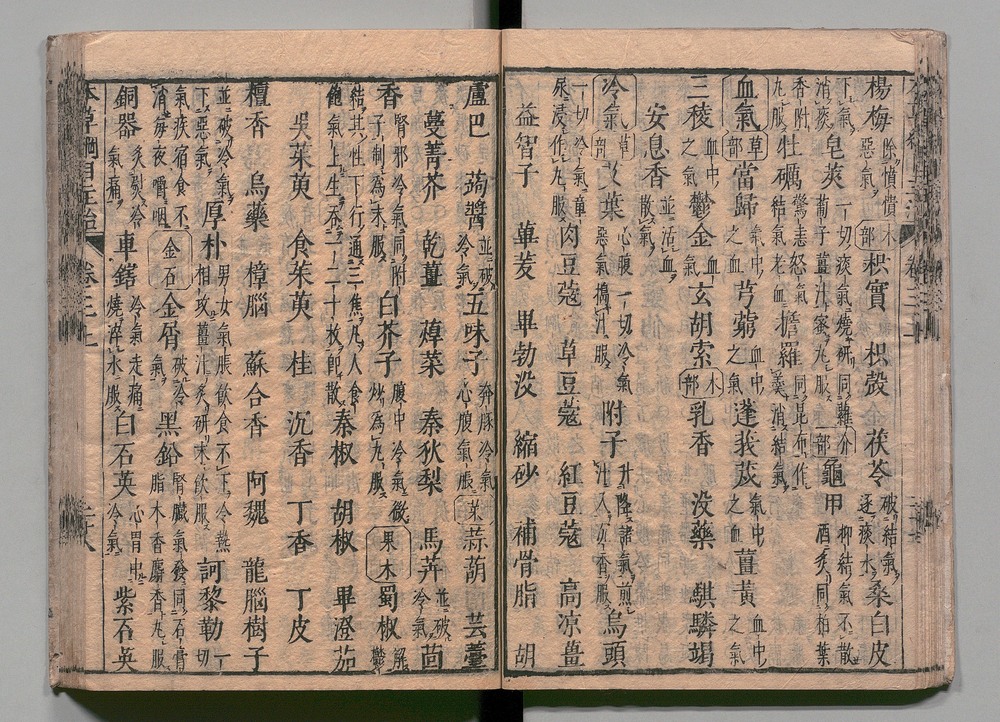 楊梅除憒憒惡氣木部枳實 枳殼 茯苓破結氣逐痰水桑白皮
下氣消痰皂莢一切痰氣燒研同蘿蔔子薑汁蜜丸服介部龜甲抑結氣不散酒炙同柏葉
香附丸服牡礪驚恚怒氣結氣老血擔羅同昆布作羹消結氣
血氣草部當歸氣中之血芎藭血中之氣蓬莪茂氣中之血薑黃血中之氣
三稜血中之氣鬱金血氣玄胡索木部乳香 没藥 騏驎竭
安息香並活血散氣
冷氣草部艾葉心腹一切冷氣惡氣搗汁服附子升降諸氣煎汁入沉香服烏頭
一切冷氣童尿浸作丸服肉豆蔻 草豆蔻 紅豆蔻 高涼薑
益智子 蓽茇 畢勃没 縮砂 補骨脂 胡
蘆巴 蒟醬並破冷氣五味子奔豚冷氣心腹氣脹菜部蒜葫 芸薹
蔓菁芥 乾薑 蔊菜 秦狄梨 馬芹並破冷氣茴
香腎邪冷氣同附子制為末服白芥子腹中冷氣微炒為丸服果木蜀椒解鬱
結其性下行通三焦凡人食飽氣上生吞一二十枚即散秦椒 胡椒 畢澄茄
吳茱萸 食茱萸 桂 沉香 丁香 丁皮
檀香 烏藥 樟腦 蘇合香 阿魏 龍腦樹子
並破冷氣下惡氣厚朴男女氣脹飲食不下冷熱相攻薑汁炙研末飲服訶黎勒一切
氣疾宿食不消每夜嚼咽金石金屑破冷氣黑鉛腎臟氣發同石膏脂木香麝香丸服
銅器炙熨冷氣痛車鎋冷氣走痛燒淬水服白石英心胃中冷氣紫石英
本草綱目主治 卷三上 二十八